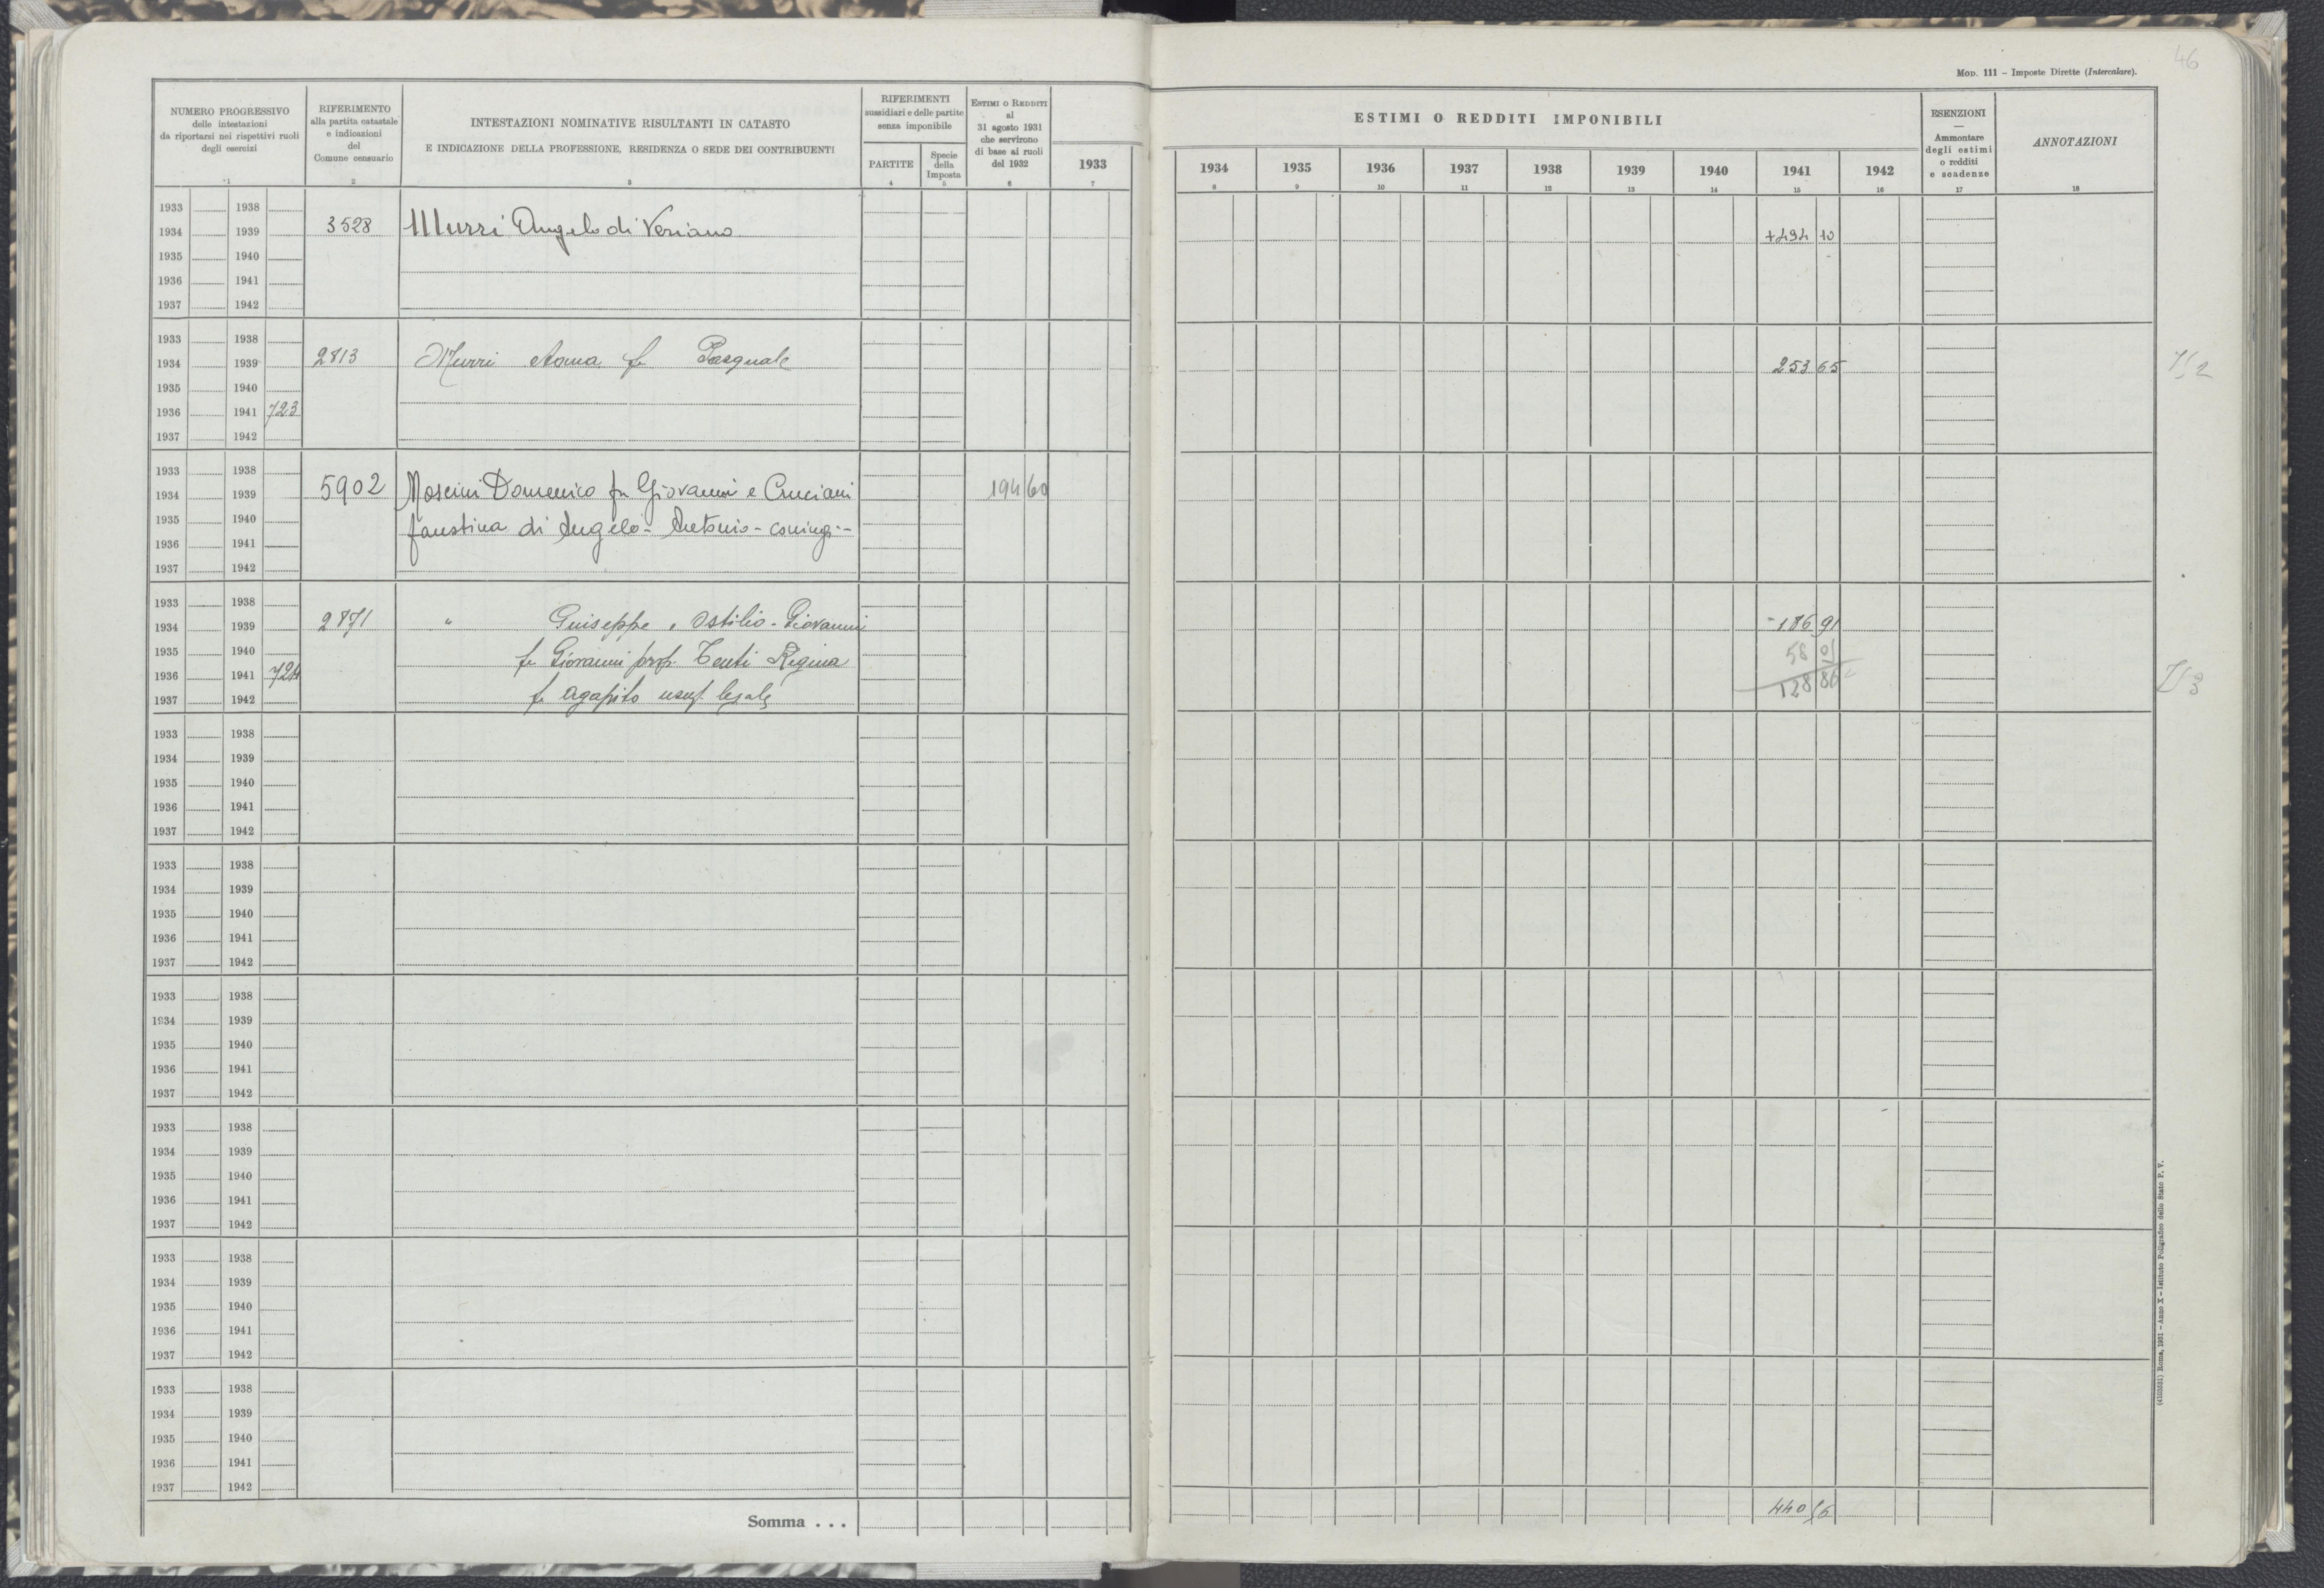 46
MOD. 111 – Imposte Dirette (Intercalare).
NUMERO PROGRESSIVO
delle intestazioni
da riportarsi nei rispettivi ruoli
degli esercizi
1
RIFERIMENTO
alla partita catastale
e indicazioni
del
Comune censuario
2
INTESTAZIONI NOMINATIVE RISULTANTI IN CATASTO
E INDICAZIONE DELLA PROFESSIONE, RESIDENZA O SEDE DEI CONTRIBUENTI
3
RIFERIMENTI
sussidiari e delle partite
senza imponibile
PARTITE
4
Specie
della
Imposta
5
ESTIMI O REDDITI
al
31 agosto 1931
che servirono
di base ai ruoli
del 1932
6
1933
7
ESTIMI O REDDITI IMPONIBILI
1934 1935 1936 1937 1938 1939 1940 1941 1942
8 9 10 11 12 13 14 15 16
ESENZIONI
—
Ammontare
degli estimi
o redditi
e scadenze
17
ANNOTAZIONI
18
1933 1938
1934 1939 3528 Murri Angelo di Veriano +494 10
1935 1940
1936 1941
1937 1942
1933 1938
1934 1939 2813 Murri Fu Pasquale 253 65
1935 1940
1936 1941 723
1937 1942
1933 1938
1934 1939 5902 Domenico fu Giovanni e Cruciani 194 60
1935 1940 faustina di Angelo - Antonio - coniugi -
1936 1941
1937 1942
1933 1938
1934 1939 2871 " Guiseppe, Ostilio - Giovanni - 186 91
1935 1940 fu Giovanni prop. Tenti Regina 58 05
1936 1941 724 128 86
1937 1942 fu Agapito usuf. legale
1933 1938
1934 1939
1935 1940
1936 1941
1937 1942
1933 1938
1934 1939
1935 1940
1936 1941
1937 1942
1933 1938
1934 1939
1935 1940
1936 1941
1937 1942
1933 1938
1934 1939
1935 1940
1936 1941
1937 1942
1933 1938
1934 1939
1935 1940
1936 1941
1937 1942
1933 1938
1934 1939
1935 1940
1936 1941
1937 1942
Somma . . . 440 56
(4103531) Roma, 1931 – Anno X – Istituto Poligrafico dello Stato P. V.